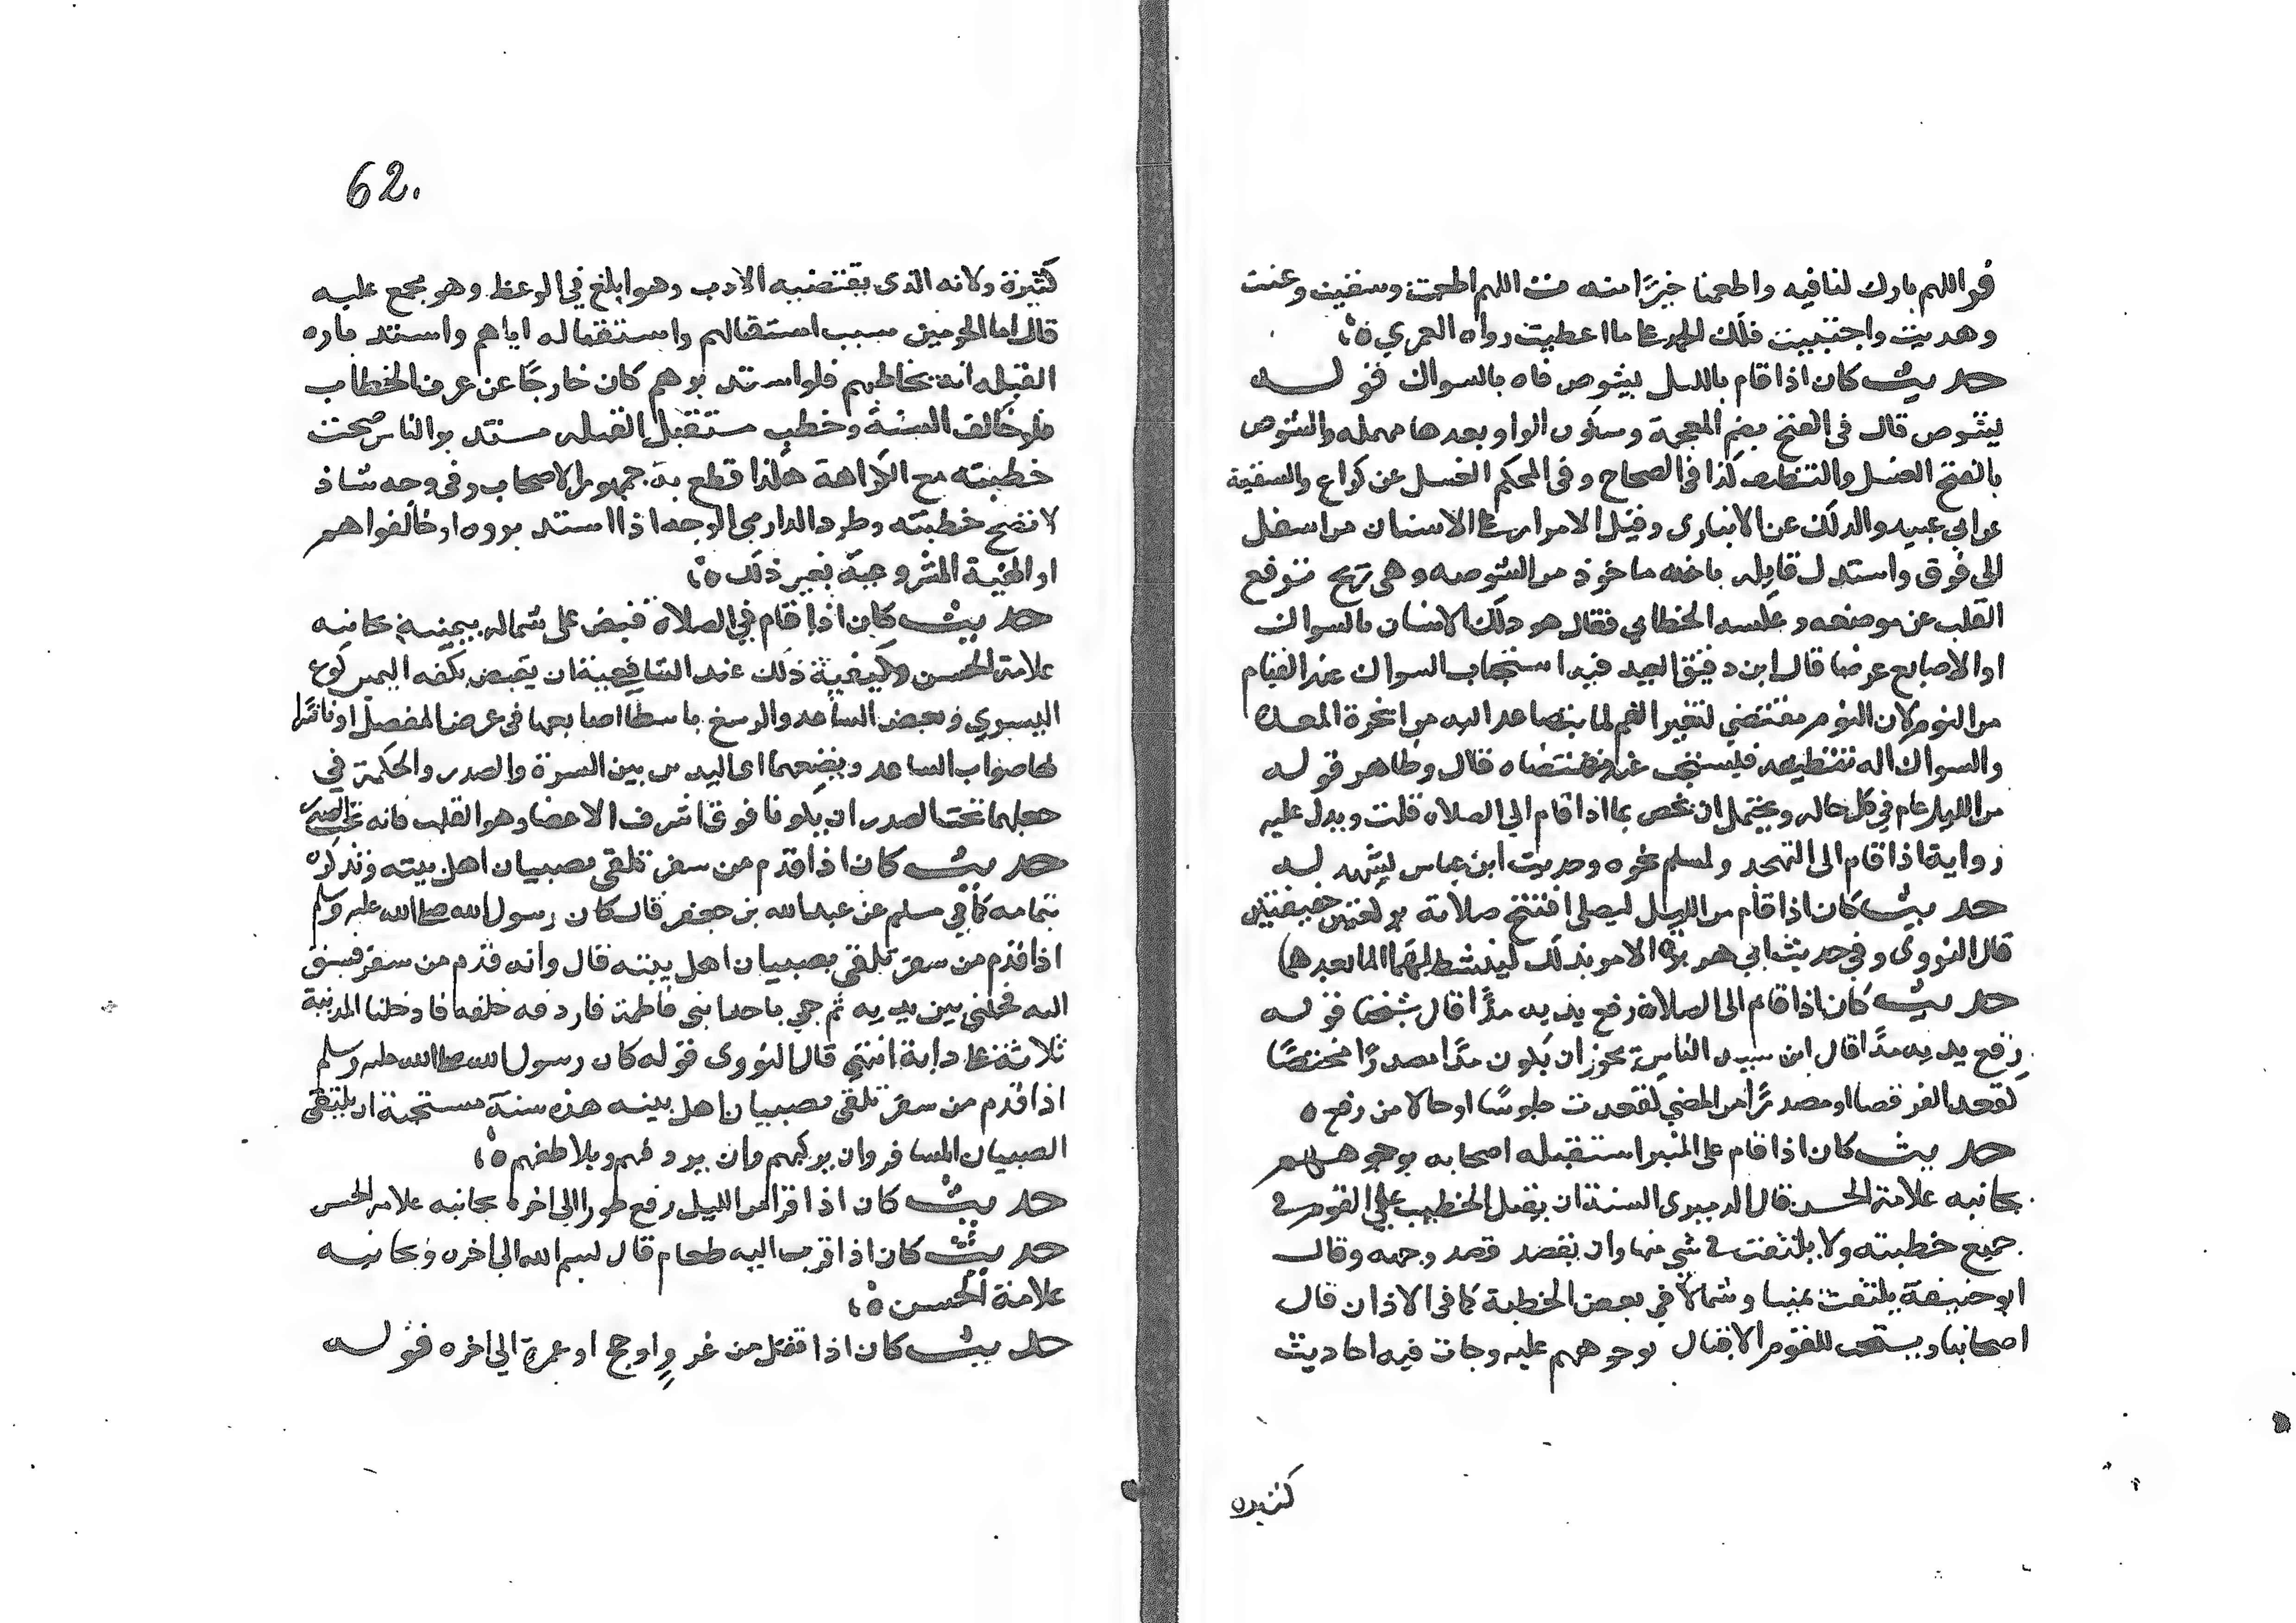 قو اللهم بارك لنا فيه واطعمنا خيرًا منه اللهم اطعمت وسقيت وعنت
وهديت واجتبيت فلك الحمد على ما اعطيت رواه العمري ٥؛
حديث كان اذا قام بالليل يشوص فاه بالسواك قوله
يشوص قال في الفتح بضم المعجمة وسكون الواو وبعدها مهمله والشوص
بالفتح الغسل والتنظيف كذا في الصحاح وفي المحكم الغسل عن كراع والتنقية
عن ابي عبيد والدلك عن الانباري وقيل الامرار على الاسنان من اسفل
الى فوق واستدل قايله بانه ماخوذ من الشوصه وهى ريح ترفع
القلب عن موضعه وعكسه الخطابي فقال هو دلك الاسنان بالسواك
او الاصابع عرضا قال ابن دقيق العيد فيه استحباب السواك عند القيام
من النوم لان النوم مقتضي لتغير الفم لما يتصاعد اليه من ابخرة المعدة
والسواك اله تنظيفه فيستحب عند مقتضاه قال وظاهر قوله
من الليل عام في كل حاله ويحتمل ان يخص بما اذا قام الى الصلاه قلت ويدل عليه
رواية اذا قام الى التهجد ولمسلم نحوه وحديث ابن عباس يشهد له
حديث كان اذا قام من الليل ليصلى افتتح صلاته بركعتين خفيفتين
قال النووى وفي حديث ابي هريرة الامر بذلك لينشط بهما لما بعدهما
حديث كان اذا قام الى الصلاة رفع يديه مدًّا قال شيخنا قوله
رفع يديه مدًا قال ابن سيد الناس يجوز ان يكون مدًا مصدرًا مختصًا
كقعد القرفصا او مصدرًا من المعنى كقعدت جلوسًا او حالا من رفع ٥
حديث كان اذا قام على المنبر استقبله اصحابه بوجوههم
بجانبه علامة الحسن قال الدميرى السنة ان يقبل الخطيب على القوم في
جميع خطبته ولا يلتفت في شي منها وان يقصد قصد وجهه وقال
ابو حنيفة يلتفت يمينا وشمالا في بعض الخطبة كما في الاذان قال
اصحابنا ويستحب للقوم الاقبال بوجوههم عليه وجات فيه احاديث
كثيره
62.
كثيرة ولانه الذى يقتضيه الادب وهو ابلغ في الوعظ وهو مجمع عليه
قال امام الحرمين سبب استقبالهم واستقباله اياهم واستدباره
القبله انه يخاطبهم فلو استدبرهم كان خارجًا عن عرف الخطاب
فلو خالف السنة وخطب مستقبل القبله مستدبر الناس صحت
خطبته مع الكراهة هكذا قطع به جمهور الاصحاب وفي وجه شاذ
لا تصح خطبته وطرد الدارمي الوجه اذا استدبروه او خالفوا هم
او الهيئة المشروعة بغير ذلك ٥؛
حديث كان اذا قام في الصلاة قبض على شماله بيمينه بجانبه
علامة الحسن وكيفية ذلك عند الشافعية ان يقبض بكفه اليمين كوع
اليسرى وبعض الساعد والرسغ باسطا اصابعها في عرض المفصل او ناشرًا
لها صواب الساعد ويضعهما اى اليدين بين السرة والصدر والحكمة في
جعلهما تحت الصدر ان يكونا فوق اشرف الاعضا وهو القلب فانه تحت الصدر
حديث كان اذا قدم من سفر تلقى بصبيان اهل بيته وتذكرة
بتمامه كما في مسلم عن عبد الله بن جعفر قال كان رسول الله صلى الله عليه وسلم
اذا قدم من سفر تلقى بصبيان اهل بيته قال وانه قدم من سفر فسبق
اليه فحملني بين يديه ثم جي باحد ابني فاطمة فاردفه خلفه فادخلنا المدينة
ثلاثة على دابة انتهى قال النووى قوله كان رسول الله صلى الله عليه وسلم
اذا قدم من سفر تلقى بصبيان اهل بيته هذه سنة مستحبة ان يلتقى
الصبيان المسافر وان يركبهم وان يردفهم ويلاطفهم ٥؛
حديث كان اذا قرا من الليل رفع طورا الى اخره بجانبه علامة الحسن
حديث كان اذا قرب اليه طعام قال بسم الله الى اخره وبجانبه
علامة الحسن ٥؛
حديث كان اذا قفل من غزو او حج او عمرة الى اخره قوله